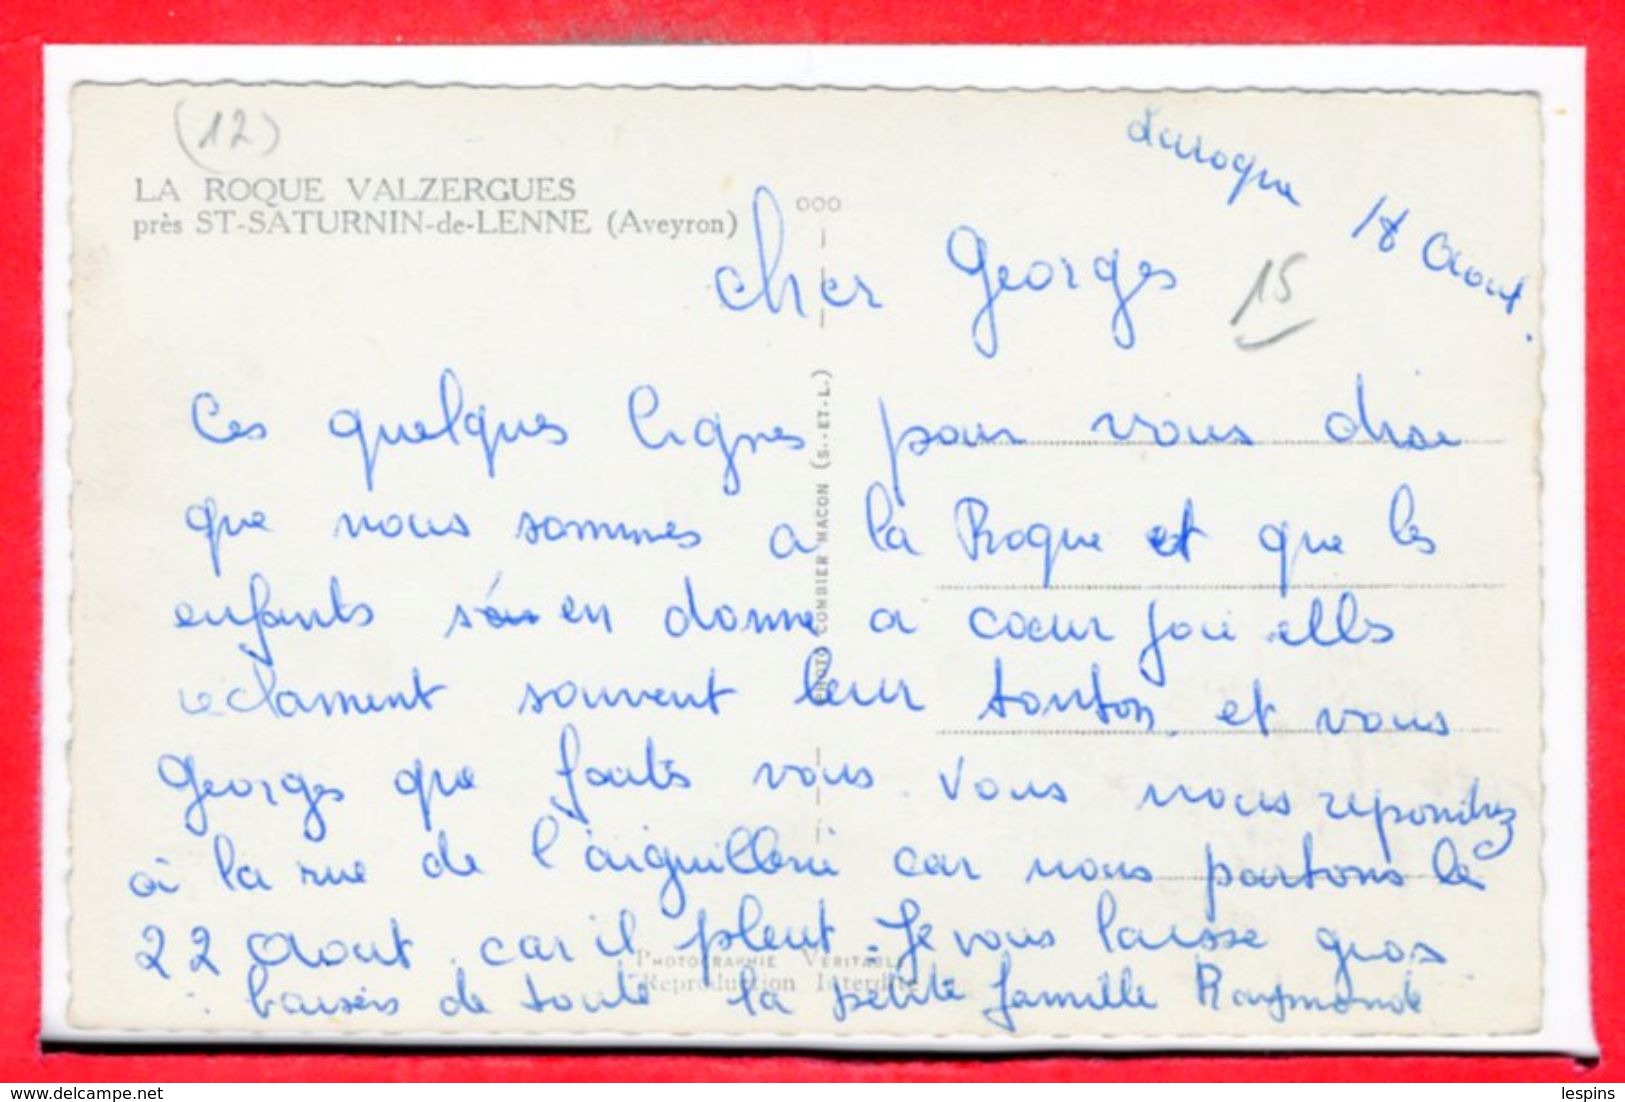 (12)
LA ROQUE VALZERGUES
près ST-SATURNIN-de-LENNE (Aveyron)
Laroque 18 Aout.
15
Cher Georges
Ces quelques lignes pour vous dire
que nous sommes a la Roque et que les
enfants s'en donne a coeur joie elles
reclament souvent leur tonton. et vous
Georges que faites vous. Vous nous repondrez
à la rue de l'aiguillerie car nous partons le
22 Aout. car il pleut. Je vous laisse gros
baisers de toute la petite famille Raymonde
OOO
PHOTO COMBIER MACON (S.-ET-L.)
PHOTOGRAPHIE VÉRITABLE
Reproduction Interdite
delcampe.net
lespins